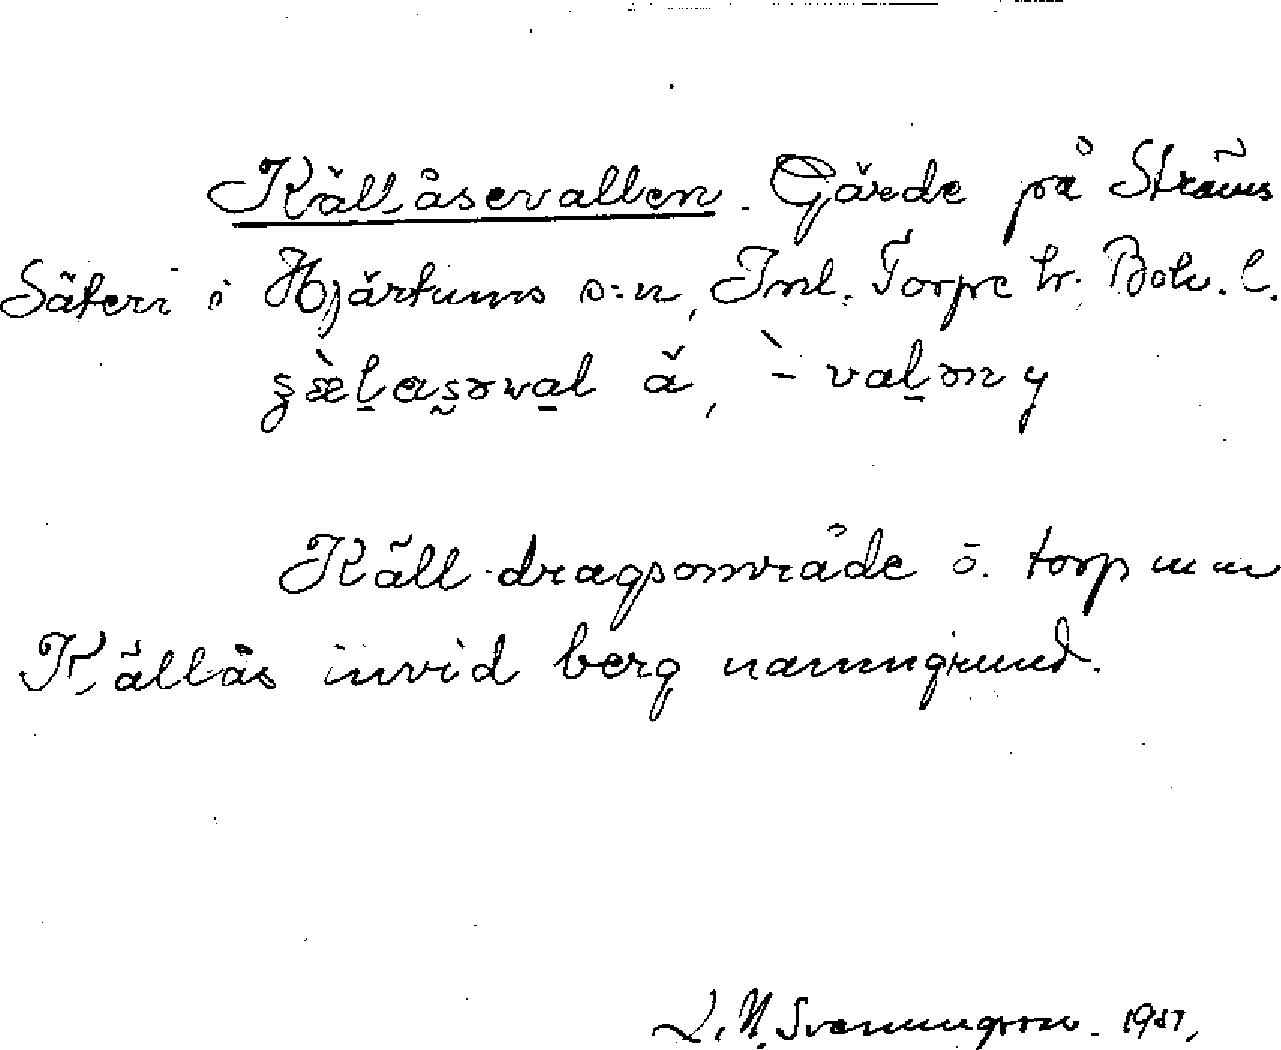 Källåsevallen. Gärde på Ströms
Säteri i Hjärtums s:n, Inl. Torpe hr. Boh. l.
Käll-dragsområde o. torp m m
Källås invid berg namngrund.
Svenungsson. 1951.